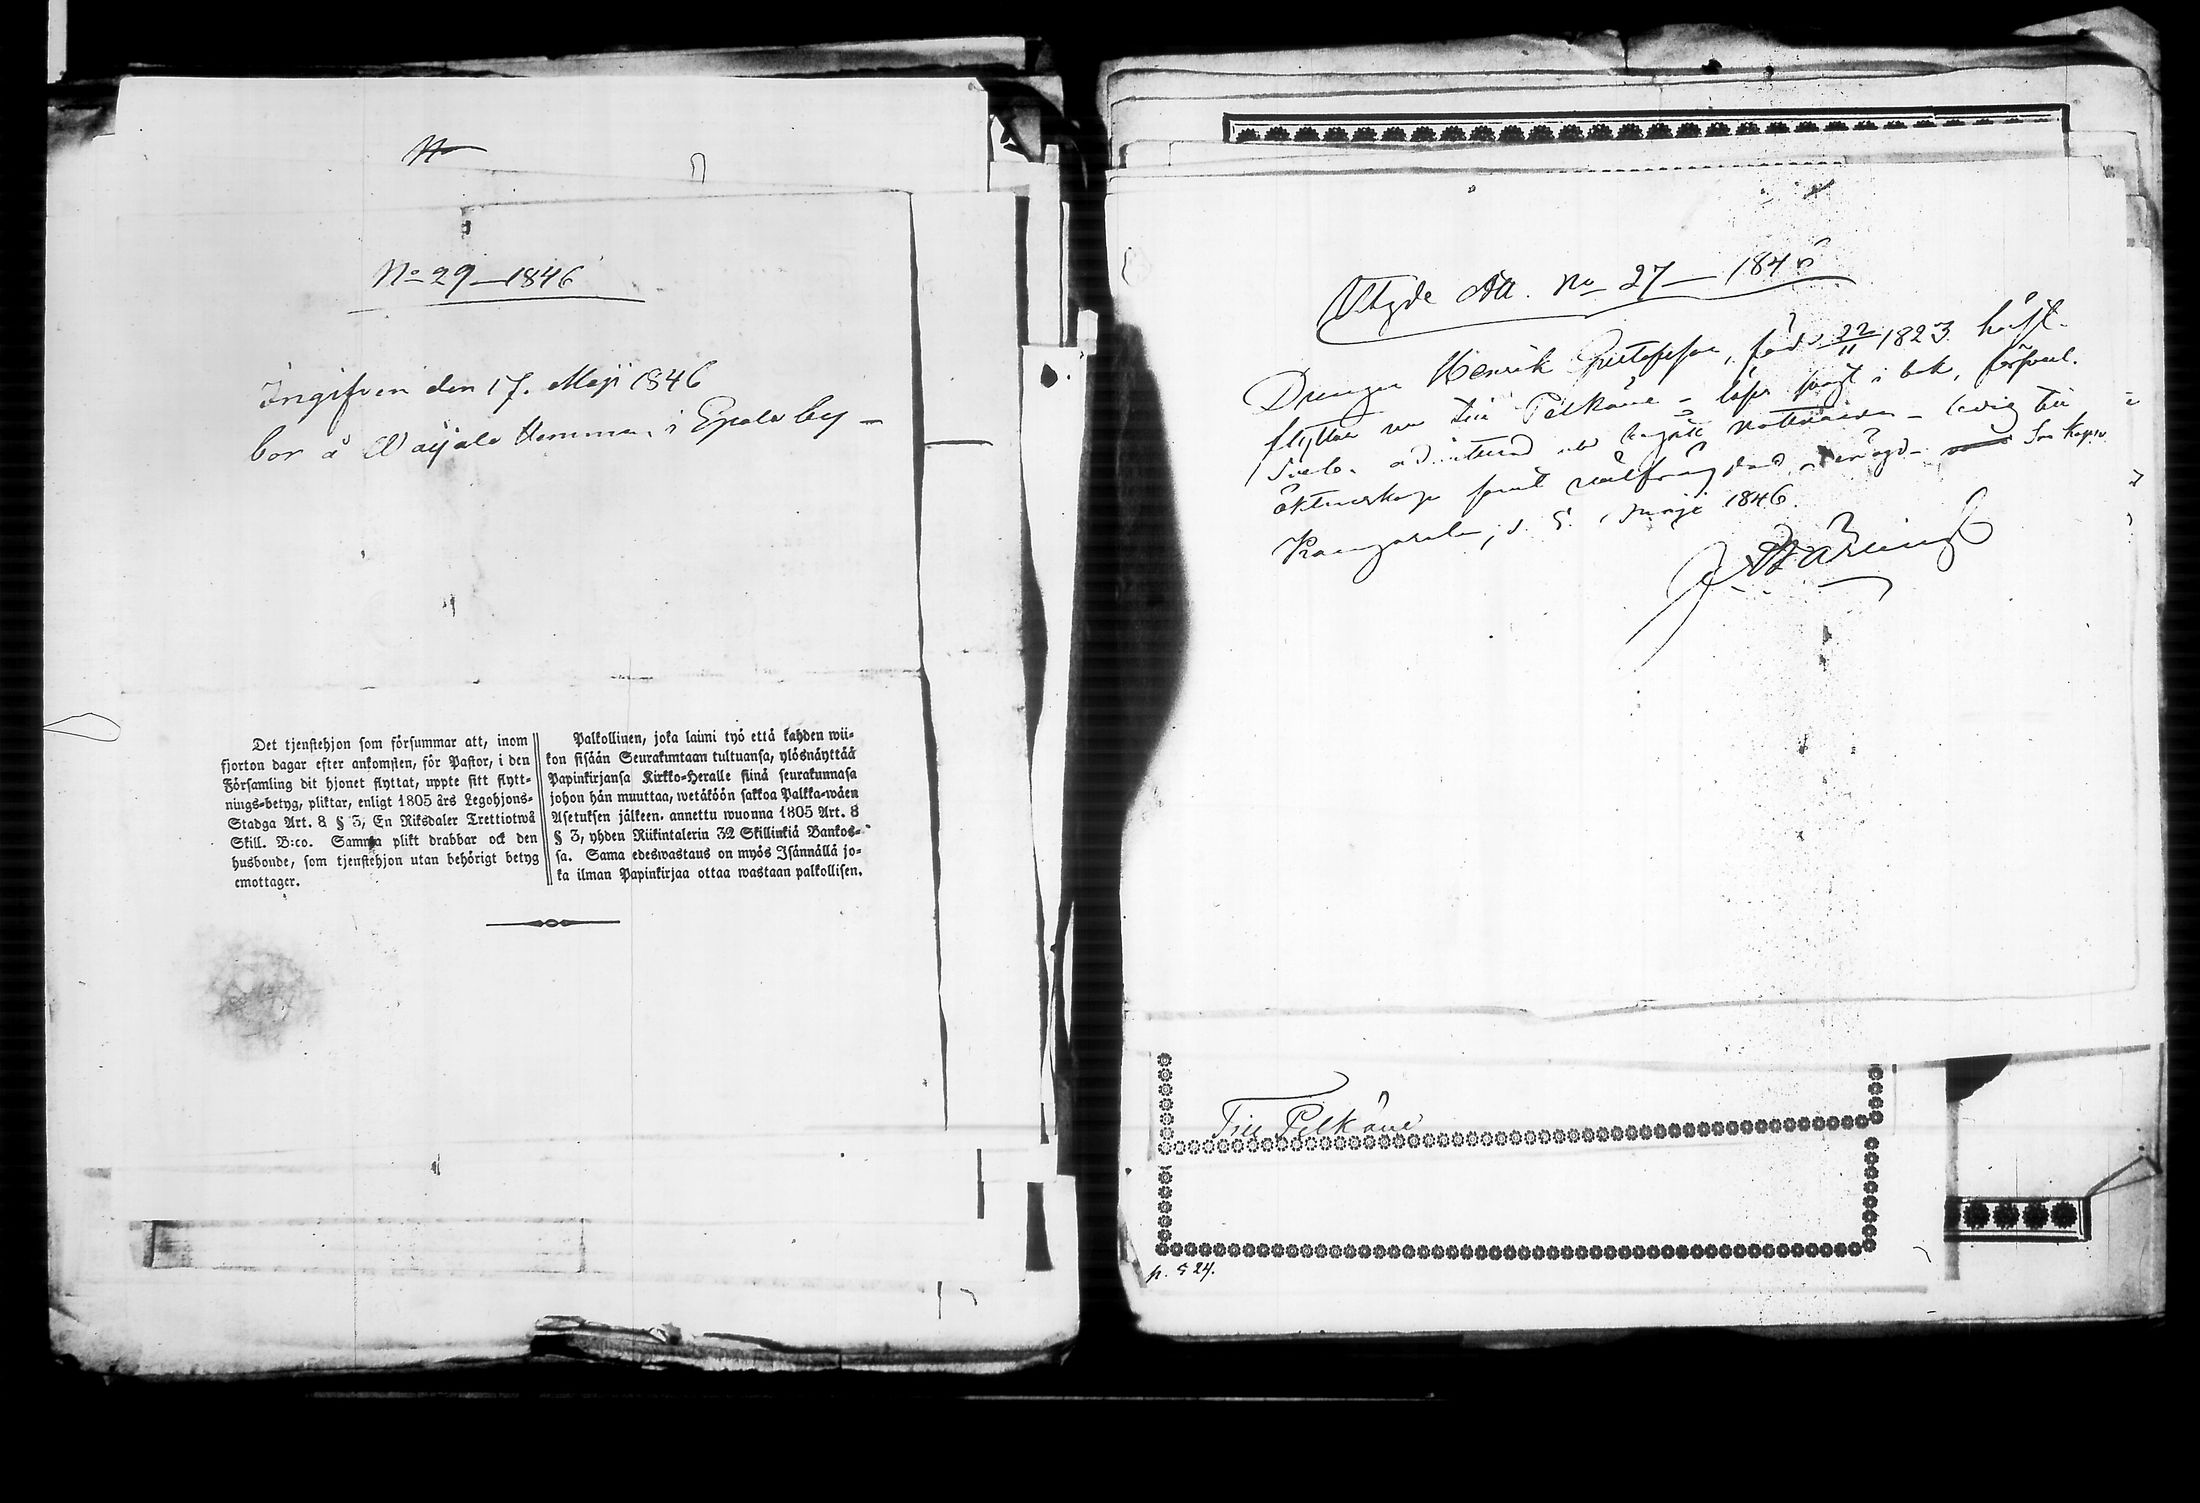 No 29 — 1846
Ingifven den 17. Maji 1846
bor å Waijala Hemman i Epala by —
Det tjenstehjon som försummar att, inom
fjorton dagar efter ankomsten, för Pastor, i den
Församling dit hjonet flyttat, uppte sitt flytt-
nings-betyg, pliktar, enligt 1805 års Legohjons-
Stadga Art. 8 § 3, En Riksdaler Trettiotwå
Skill. B:co. Samma plikt drabbar ock den
husbonde, som tjenstehjon utan behörigt betyg
emottager.
Palkollinen, joka laimi lyö että kahden wii-
kon sisään Seurakuntaan tultuansa, ylösnäyttää
Papinkirjansa Kirkko-Heralle siinä seurakunnasa
johon hän muuttaa, wetäköön sakkoa Palkka-wäen
Asetuksen jälkeen. annettu wuonna 1805 Art. 8
§ 3, yhden Riikintalerin 32 Skillinkiä Bankos-
sa. Sama edeswastaus on myös Isännällä jo-
ka ilman Papinkirjaa ottaa wastaan palkollisen.
No 27 — 1846
Drengen Henrik Gustafsson, född 22/11 1823
flyttar nu till Pelkäne – i bok,
ledig till
äktenskap samt
d. 5. 1846.
Till Pelkäne
p. 524.